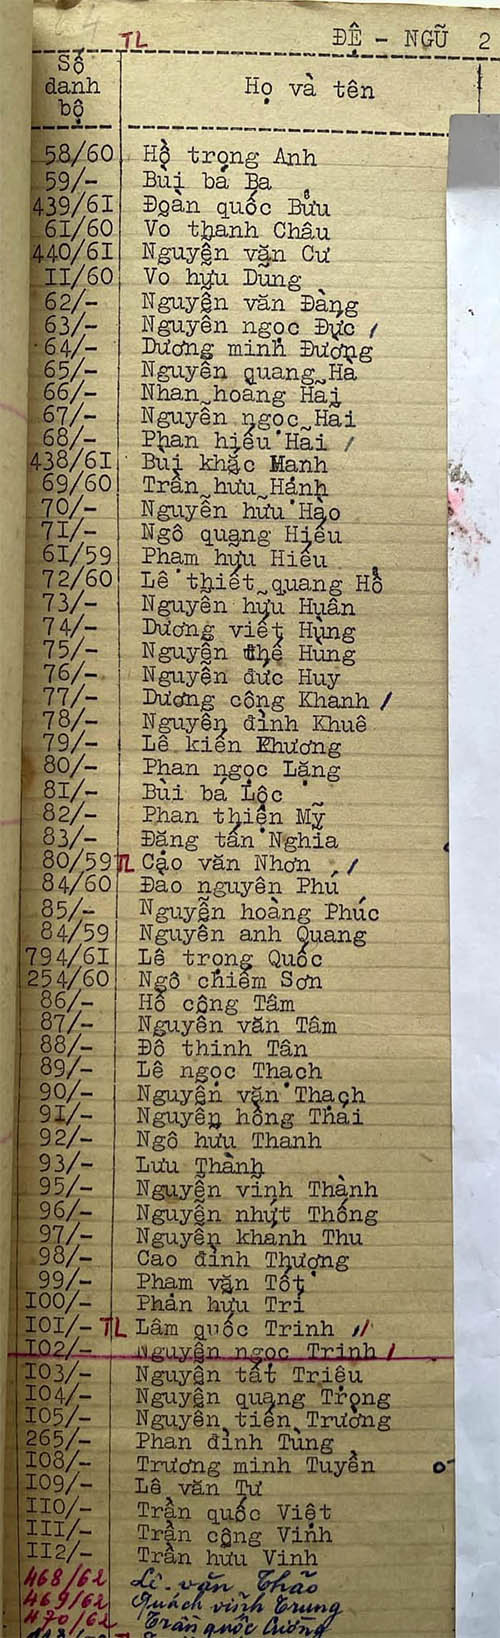 TL
ĐỆ - NGŨ 2
Số danh bộ
Họ và tên
58/60 Hồ trọng Anh
59/- Bùi bá Ba
439/6I Đoàn quốc Bửu
6I/60 Vo thanh Châu
440/6I Nguyễn văn Cư
II/60 Vo hữu Dũng
62/- Nguyễn văn Đàng
63/- Nguyễn ngọc Đức /
64/- Dương minh Đường
65/- Nguyễn quang Hà
66/- Nhan hoàng Hãi
67/- Nguyễn ngọc Hãi
68/- Phan hiếu Hãi /
438/6I Bùi khắc Manh
69/60 Trần hưu Hạnh
70/- Nguyễn hữu Hào
7I/- Ngô quang Hiếu
6I/59 Phạm hữu Hiếu
72/60 Lê thiết quang Hổ
73/- Nguyễn hữu Huân
74/- Dương viết Hùng
75/- Nguyễn thế Hùng
76/- Nguyễn đức Huy
77/- Dương công Khanh /
78/- Nguyễn đình Khuê
79/- Lê kiến Khương
80/- Phan ngọc Lặng
8I/- Bùi bá Lộc
82/- Phan thiện Mỹ
83/- Đặng tấn Nghĩa
80/59 TL Cao văn Nhơn /
84/60 Đào nguyên Phú
85/- Nguyễn hoàng Phúc
84/59 Nguyễn anh Quang
794/6I Lê trọng Quốc
254/60 Ngô chiếm Sơn
86/- Hồ công Tâm
87/- Nguyễn văn Tâm
88/- Đỗ thinh Tân
89/- Lê ngọc Thach
90/- Nguyễn văn Thạch
9I/- Nguyễn hồng Thái
92/- Ngô hữu Thanh
93/- Lưu Thành
95/- Nguyễn vĩnh Thành
96/- Nguyễn nhựt Thống
97/- Nguyễn khánh Thu
98/- Cao đình Thượng
99/- Phạm văn Tốt
I00/- Phan hữu Trí
I0I/- TL Lâm quốc Trinh //
I02/- Nguyễn ngọc Trinh /
I03/- Nguyễn tất Triệu
I04/- Nguyễn quang Trọng
I05/- Nguyễn tiến Trường
265/- Phan đình Tùng
I08/- Trương minh Tuyền
I09/- Lê văn Tư
II0/- Trần quốc Việt
III/- Trần công Vinh
II2/- Trần hữu Vinh
468/62 Lê văn Thảo
469/62 Quách vĩnh Trung
470/62 Trần quốc Cường